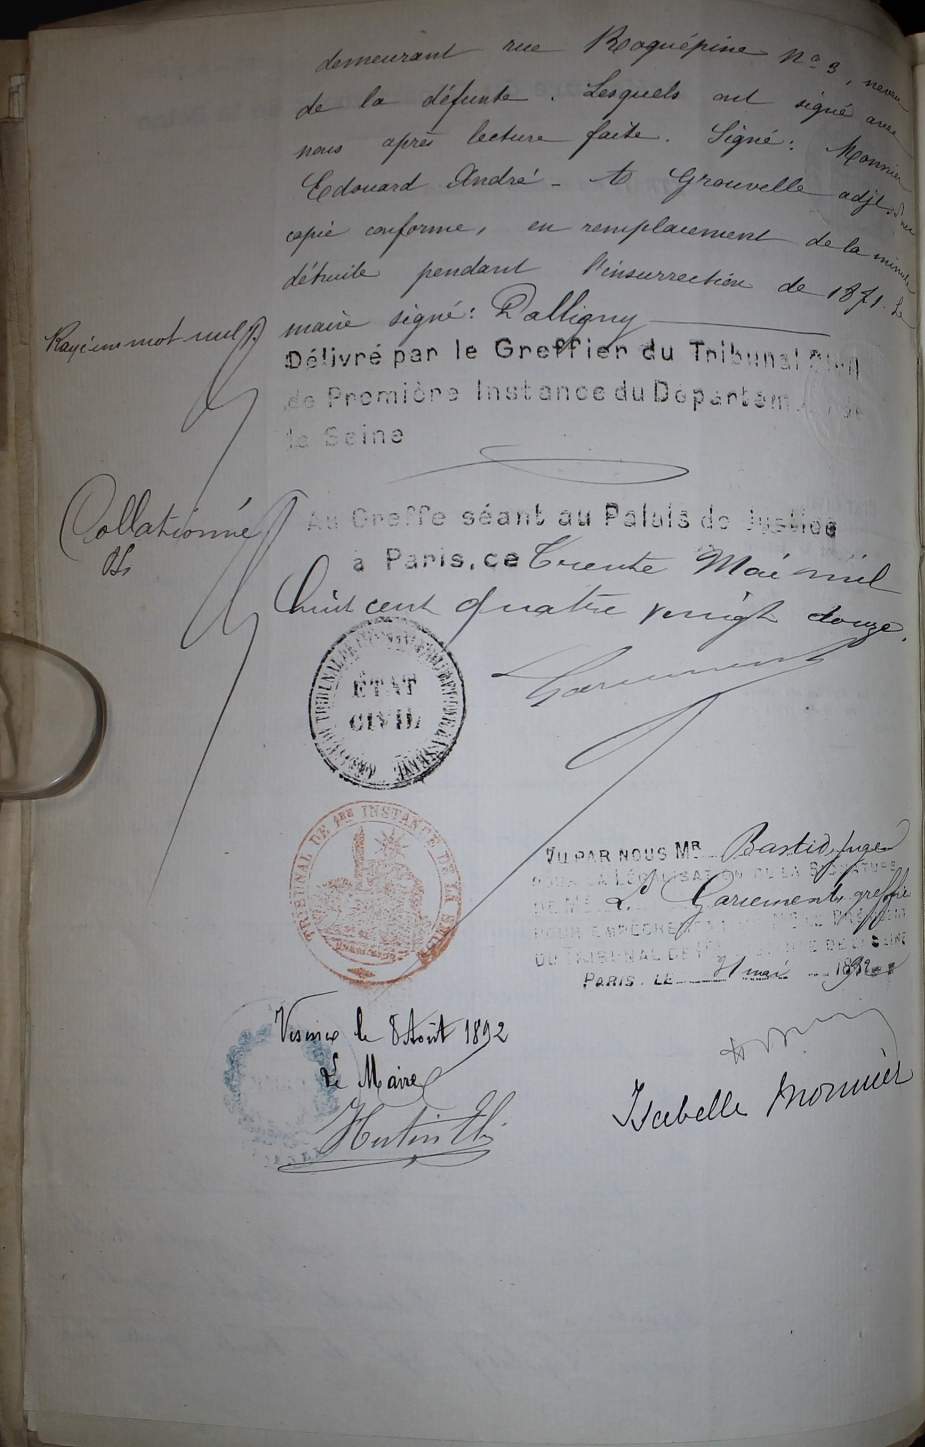 demeurant rue Roquépine No 3, neveu
de la défunte. Lesquels ont signé avec
nous après lecture faite. Signé: Monnier
Edouard André - Grouvelle adjt Pour
copie conforme, en remplacement de la minute
détruite pendant l'insurrection de 1871. Le
maire signé: Dalligny
Rayé un mot nul
Délivré par le Greffier du Tribunal Civil
de Première Instance du Département de
la Seine
Collationné
Au Greffe séant au Palais de Justice
à Paris, ce Trente Mai mil
huit cent quatre vingt douze.
ÉTAT
CIVIL
TRIBUNAL DE 1ERE INSTANCE DE LA SEINE
VU PAR NOUS MR Bastid Juge
POUR LA LÉGALISATION DE LA SIGNATURE
DE ME L. Garcement greffier
POUR EMPÊCHEMENT DE M. LE PRÉSIDENT
DU TRIBUNAL DE 1ERE INSTANCE DE LA SEINE
PARIS. LE 31 mai 1892
le 8 Août 1892
Le Maire
Isabelle Monnier